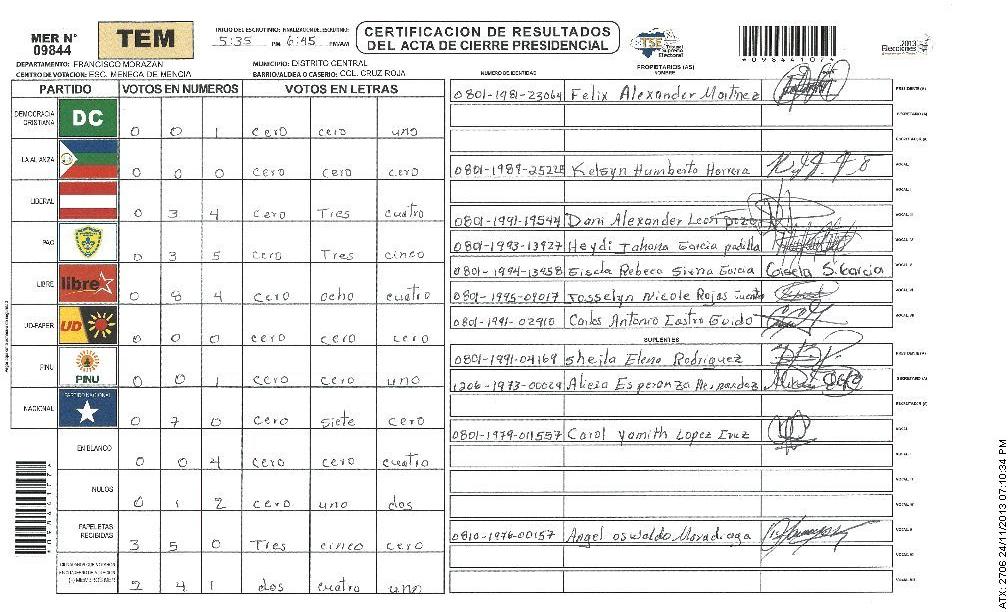 MER N° 09844
TEM
INICIO DEL ESCRUTINIO: FINALIZACION DE ESCRUTINIO:
5:35 PM 6:45 PM/AM
CERTIFICACION DE RESULTADOS
DEL ACTA DE CIERRE PRESIDENCIAL
TSE Tribunal Supremo Electoral
*09844107*
Elecciones 2013
DEPARTAMENTO: FRANCISCO MORAZAN
MUNICIPIO: DISTRITO CENTRAL
CENTRO DE VOTACION: ESC. MENECA DE MENCIA
BARRIO/ALDEA O CASERIO: COL. CRUZ ROJA
NUMERO DE IDENTIDAD
PROPIETARIOS (AS)
NOMBRE
PARTIDO VOTOS EN NUMEROS VOTOS EN LETRAS
DEMOCRACIA CRISTIANA DC 0 0 1 cero cero uno
LA ALIANZA 0 0 0 cero cero cero
LIBERAL 0 3 4 cero Tres cuatro
PAC 0 3 5 cero Tres cinco
LIBRE libre 0 8 4 cero ocho cuatro
UD-FAPER UD 0 0 0 cero cero cero
PINU PINU 0 0 1 cero cero uno
NACIONAL PARTIDO NACIONAL 0 7 0 cero siete cero
EN BLANCO 0 0 4 cero cero cuatro
NULOS 0 1 2 cero uno dos
PAPELETAS RECIBIDAS 3 5 0 Tres cinco cero
2 4 1 dos cuatro uno
0801-1981-23064 Felix Alexander Martinez
0801-1989-25228 Kelsyn Humberto Herrera
0801-1991-19544 Dani Alexander Leon
0801-1993-13927 Heydi Johana Garcia padilla
0801-1994-13458 Gisela Rebeca Sierra Garcia Gisela S. Garcia
0801-1995-09017 Josselyn Nicole Rojas
0801-1991-02910 Carlos Antonio Castro Guido
SUPLENTES
0801-1991-04169 Sheila Elena Rodriguez
1206-1973-00069 Alicia Esperanza Hernandez
0801-1979-011557 Carol Yamith Lopez
0810-1976-00157 Angel oswaldo Maradiaga
ATX: 2706 24/11/2013 07:10:34 PM